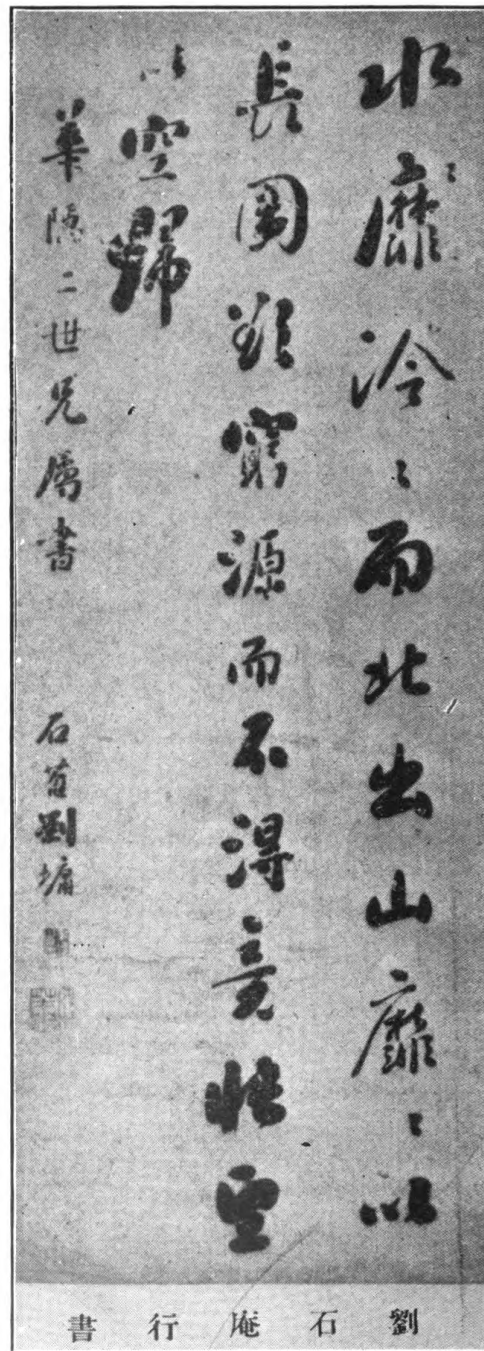 水靡泠〻而北出山靡〻以
長圍欲窮源而不得竟悵望
以空歸
華隱二世兄屬書
石菴劉墉
劉石庵行書